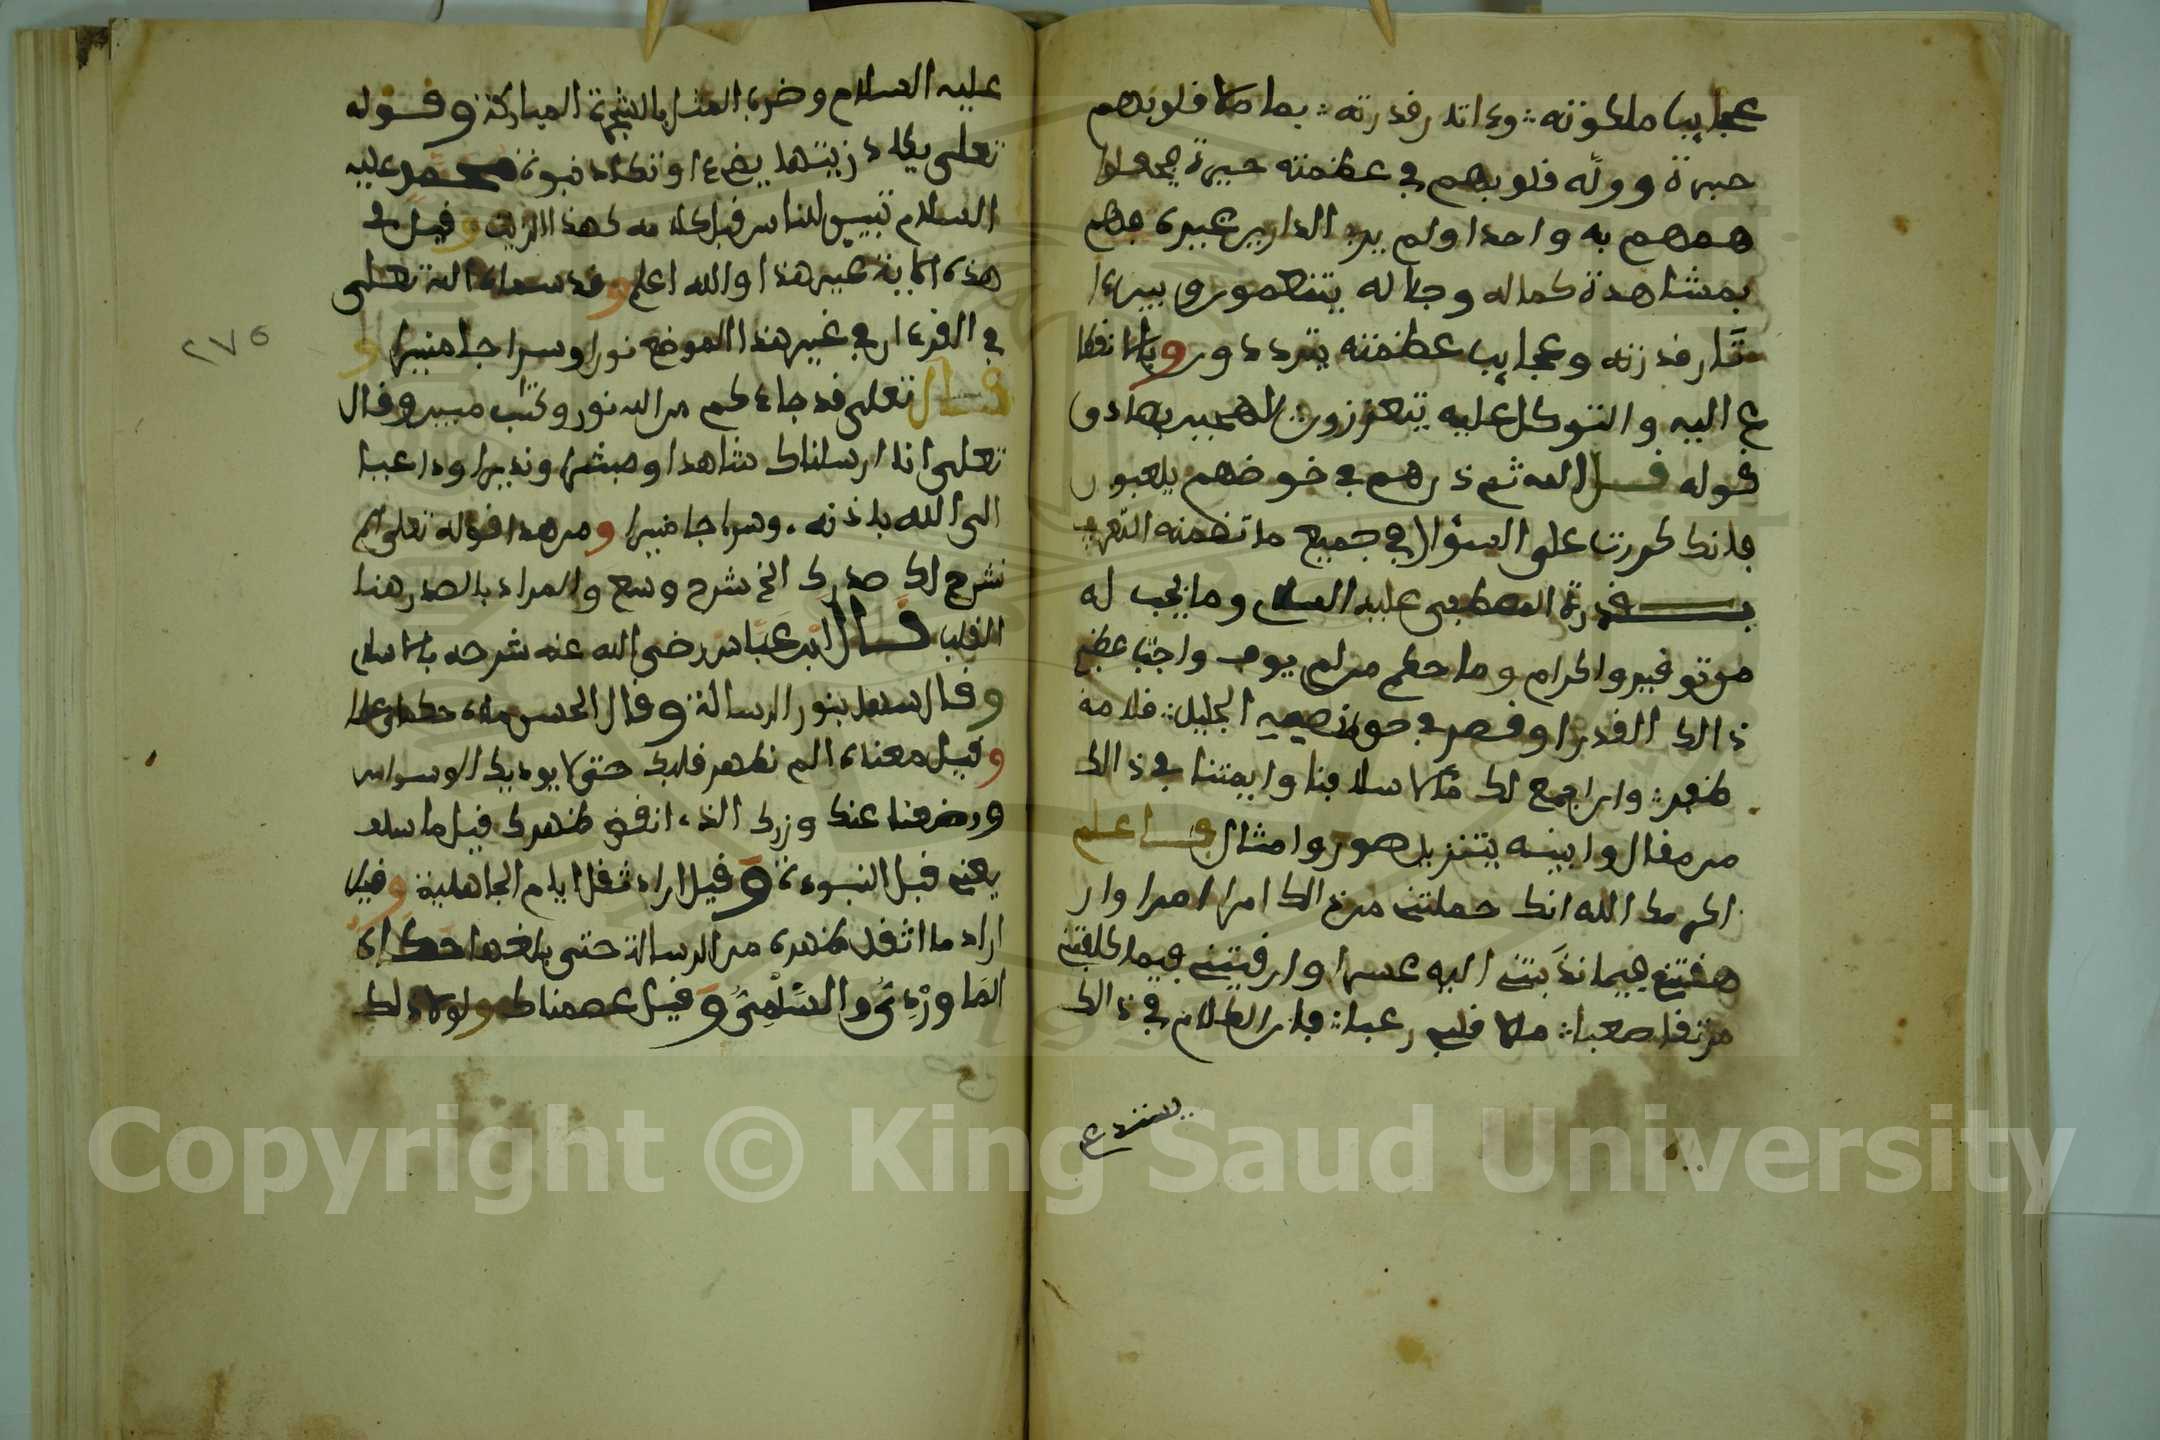 عجايب ملكوته وءاثار قدرته بما ملا قلوبهم
حبرة ووله قلوبهم في عظمته حيرة فجعلوا
همهم به واحدا ولم يروا في الدارين غيره فهم
بمشاهدة كماله وجلاله يتنعمون وبين ءا
ثار قدرته وعجايب عظمته يترددون وبالانقطا
ع اليه والتوكل عليه يتعززون لهجين بصادق
قوله قل الله ثم ذرهم في خوضهم يلعبون
فانك كررت على السؤال في جميع ما تضمنه التعريف
بـقدرة المصطفى عليه السلام وما يجب له
من توقير واكرام وما حكم من لم يوف واجب عظيم
ذالك القدر او قصر في حق منصبه الجليل قلامة
ظفر وان اجمع لك ما لاسلافنا وايمتنا في ذالك
من مقال وابينه بتنزيل صور وامثال فـاعلم
اكرمك الله انك حملتني من ذالك امرا امرا وار
هقتني فيما ندبتني اليه عسرا وارقيتني فيما كلفتني
مرتقا صعبا ملا قلبي رعبا فان الكلام في ذالك
يستدع
عليه السلام وضرب المثل بالشجرة المباركة وقوله
تعلى يكاد زيتها يضيء اي تكاد نبوة محمد عليه
السلام تبين للناس قبل كلامه كهذا الزيت وقيل في
هذه الاية غير هذا والله اعلم وقد سماه الله تعلى
في القرءان في غير هذا الموضع نورا وسراجا منيرا و
قـال تعلى قد جاءكم من الله نور وكتب مبين وقال
تعلى انا ارسلناك شاهدا ومبشرا ونذيرا وداعيا
الى الله باذنه وسراجا منيرا ومن هذا قوله تعلى الم
نشرح لك صدرك الخ شرح وسع والمراد بالصدر هنا
القلب قـال ابن عباس رضي الله عنه شرحه بالاسلام
وقال سهل بنور الرسالة وقال الحسن ملاه حكما وعلما
وقيل معناه الم نطهر قلبك حتى لا يوذيك الوسواس
ووضعنا عنك وزرك الذي انقض ظهرك قيل ما سلف
يعني قبل النبوءة وقيل اراد ثقل ايام الجاهلية وقيل
اراد ما اثقل ظهره من الرسالة حتى بلغها حكاه
الماوردي والسلمي وقيل عصمناك ولولا ذلك
٢٧٥
Copyright © King Saud University